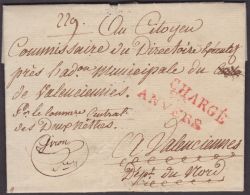 229. Au Citoyen
Commissaire du Directoire Exécutif
près l'adon. Municipale du
de Valenciennes,
Pr. le Commre. Central
des Deux Nethes
CHARGÉ
ANVERS
à Valenciennes
Dépt. du Nord